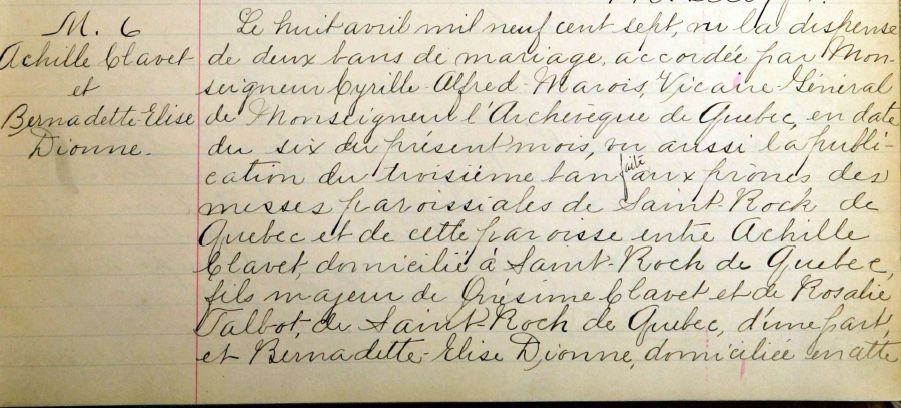 M. 6
Achille Clavet
et
Bernadette-Elise
Dionne.
Le huit avril mil neuf cent sept, vu la dispense
de deux bans de mariage, accordée par Mon-
seigneur Cyrille-Alfred-Marois, Vicaire Général
de Monseigneur l'Archevêque de Quebec, en date
du six du présent mois, vu aussi la publi-
cation du troisième ban faite aux prônes des
messes paroissiales de Saint-Roch de
Quebec et de cette paroisse entre Achille
Clavet, domicilié à Saint-Roch de Quebec,
fils majeur de Onésime Clavet et de Rosalie
Talbot, de Saint-Roch de Quebec, d'une part,
et Bernadette-Elise Dionne, domiciliée en cette